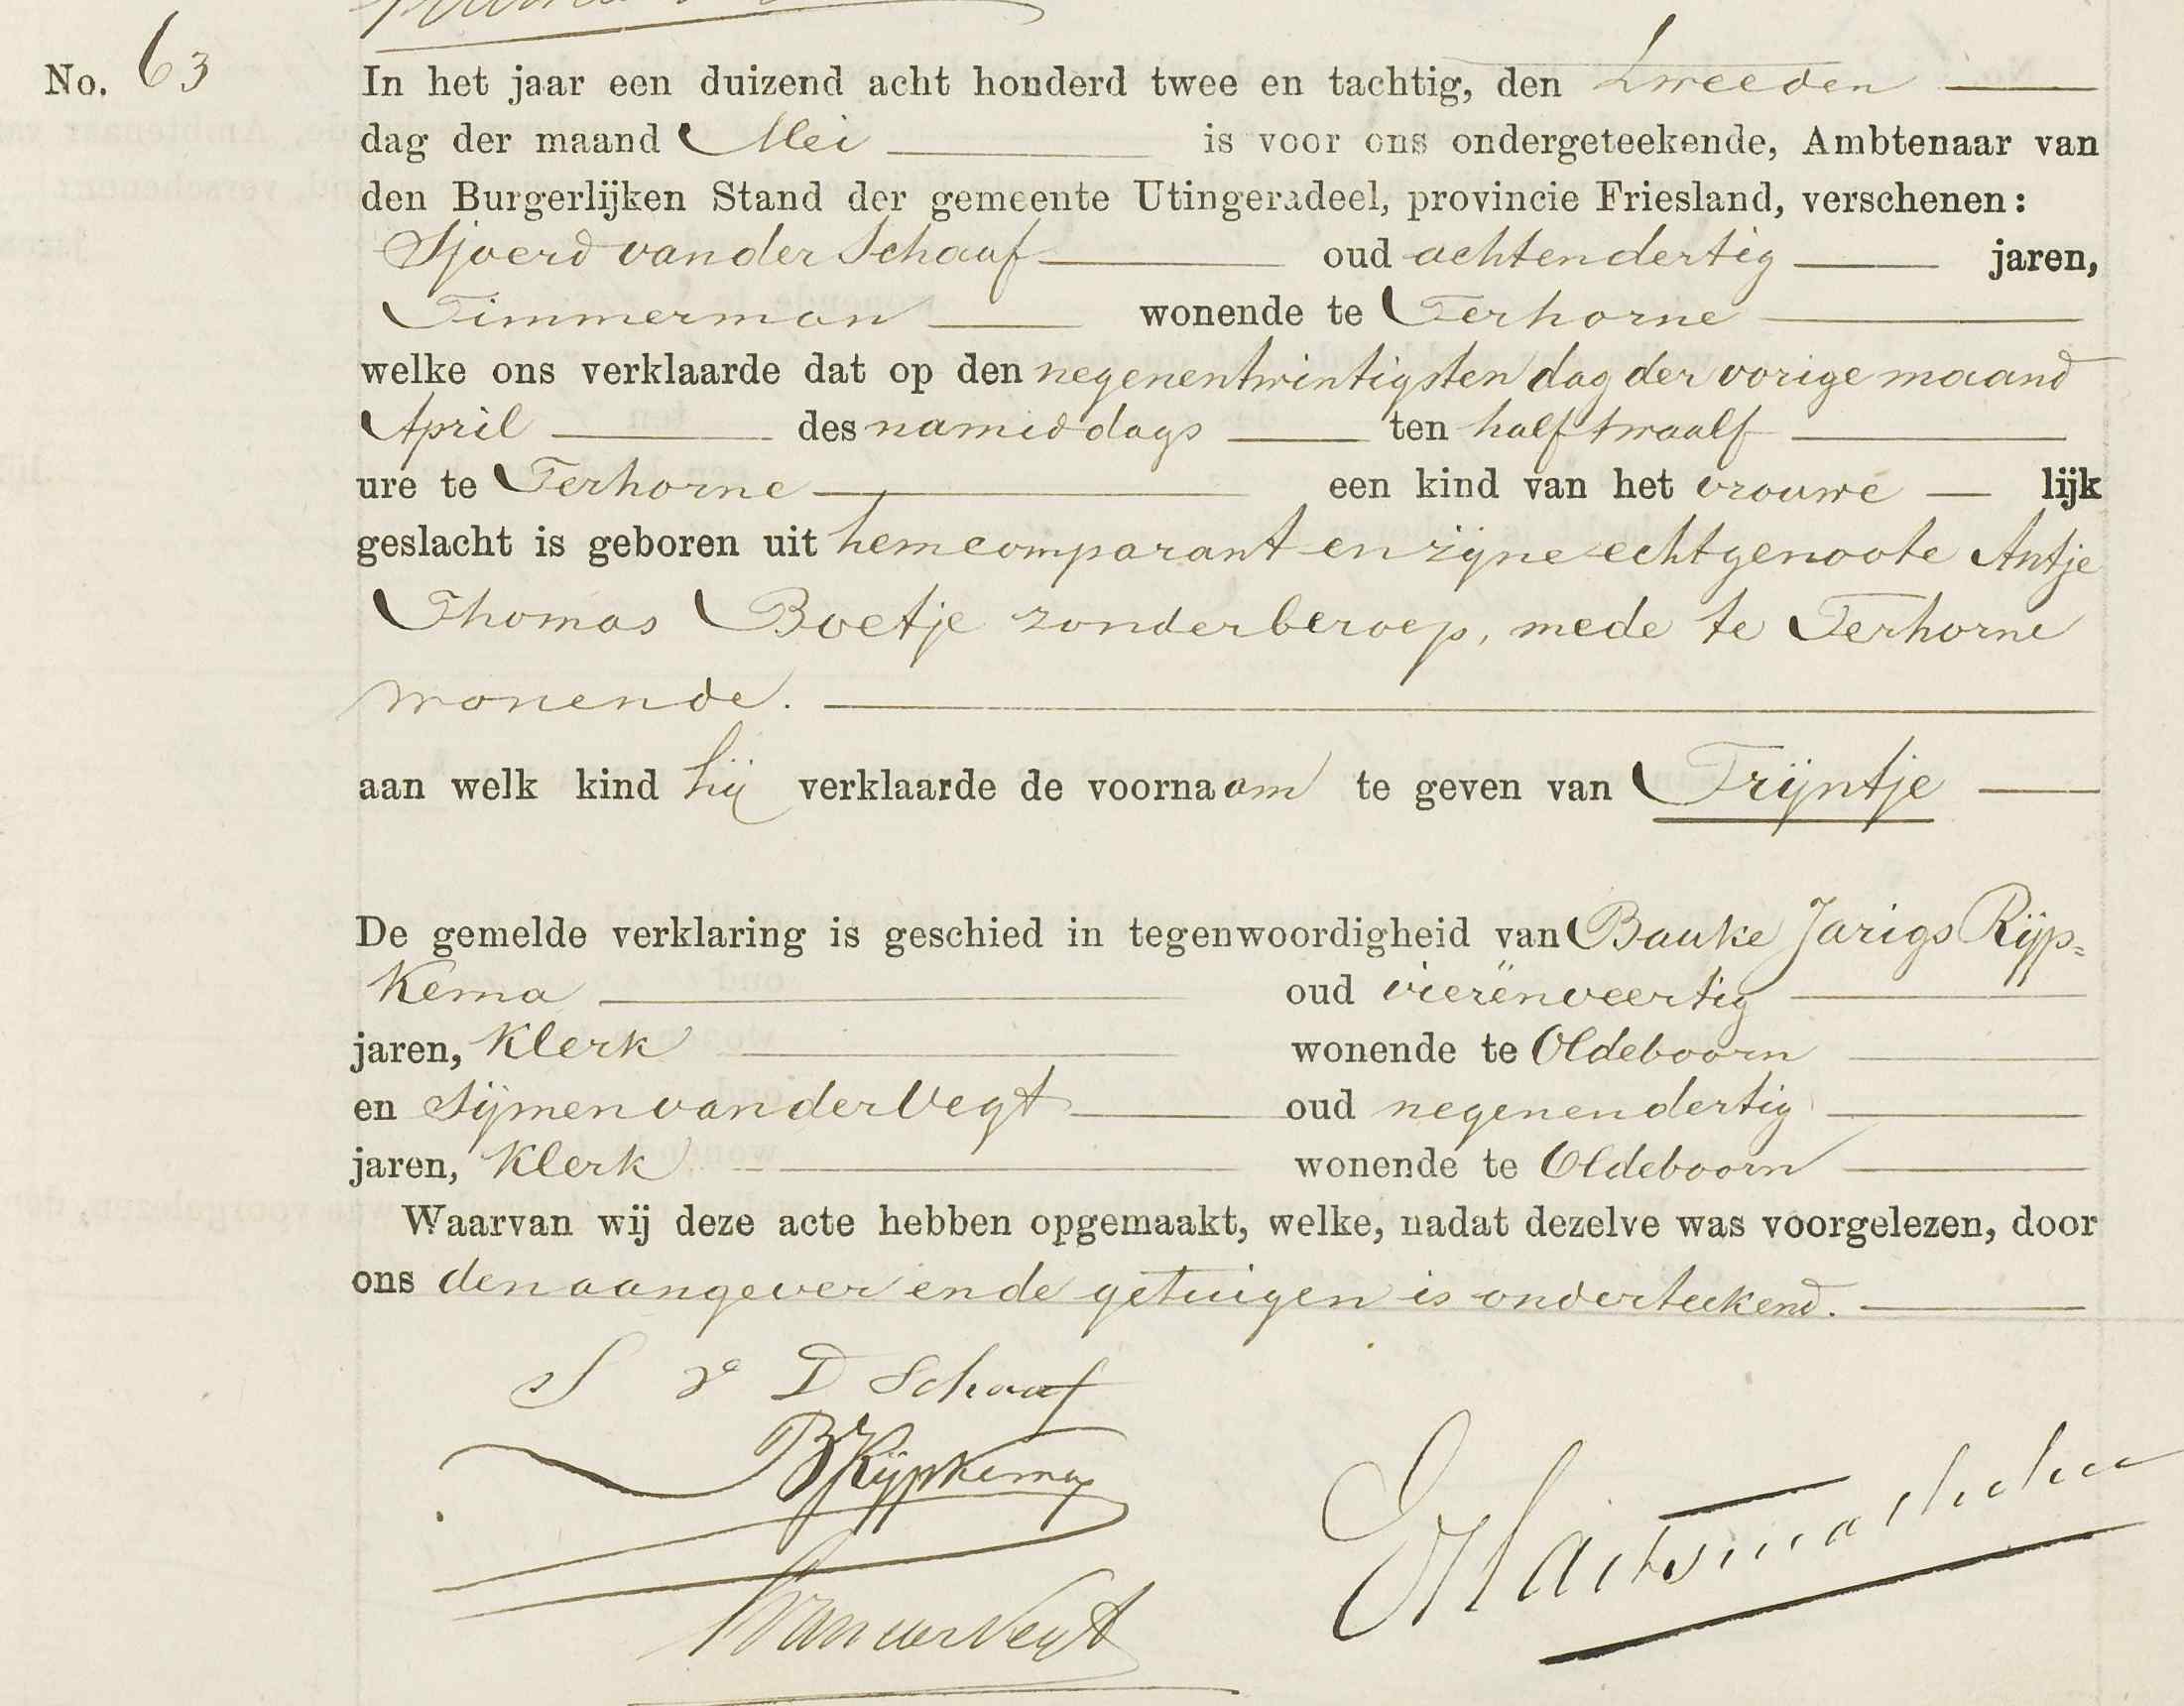 No. 63
In het jaar een duizend acht honderd twee en tachtig, den tweeden
dag der maand Mei is voor ons ondergeteekende, Ambtenaar van
den Burgerlijken Stand der gemeente Utingeradeel, provincie Friesland, verschenen:
Sjoerd van der Schaaf oud achtendertig jaren,
Timmerman wonende te Terhorne
welke ons verklaarde dat op den negenentwintigsten dag der vorige maand
April des namiddags ten half twaalf
ure te Terhorne een kind van het vrouwe lijk
geslacht is geboren uit hem comparant en zijne echtgenoote Antje
Thomas Boetje zonder beroep, mede te Terhorne
wonende.
aan welk kind hij verklaarde de voornaam te geven van Trijntje
De gemelde verklaring is geschied in tegenwoordigheid van Bauke Jarigs Rijp=
kema oud vierënveertig
jaren, Klerk wonende te Oldeboorn
en Sijmen van der Vegt oud negenendertig
jaren, Klerk wonende te Oldeboorn
Waarvan wij deze acte hebben opgemaakt, welke, nadat dezelve was voorgelezen, door
ons den aangever en de getuigen is onderteekend.
S v D Schaaf
BJRijpkema
SvanderVegt